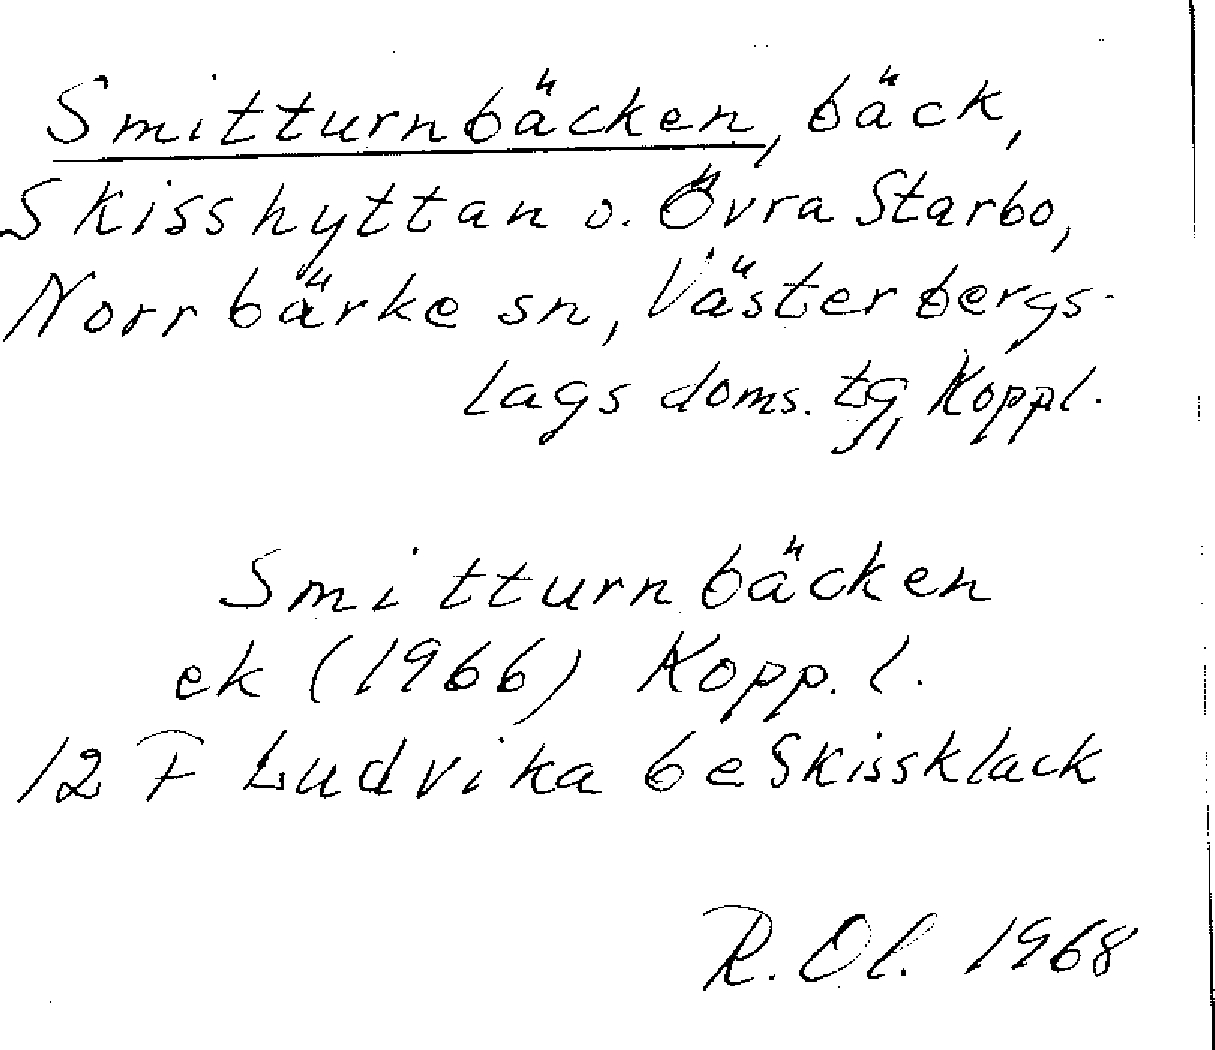 Smitturnbäcken, bäck,
Skisshyttan o. Övra Starbo,
Norrbärke sn, Västerbergs-
lags doms. tg, Koppl.
Smitturnbäcken
ek (1966) Kopp. l.
12 F Ludvika 6e Skissklack
R. Ol. 1968